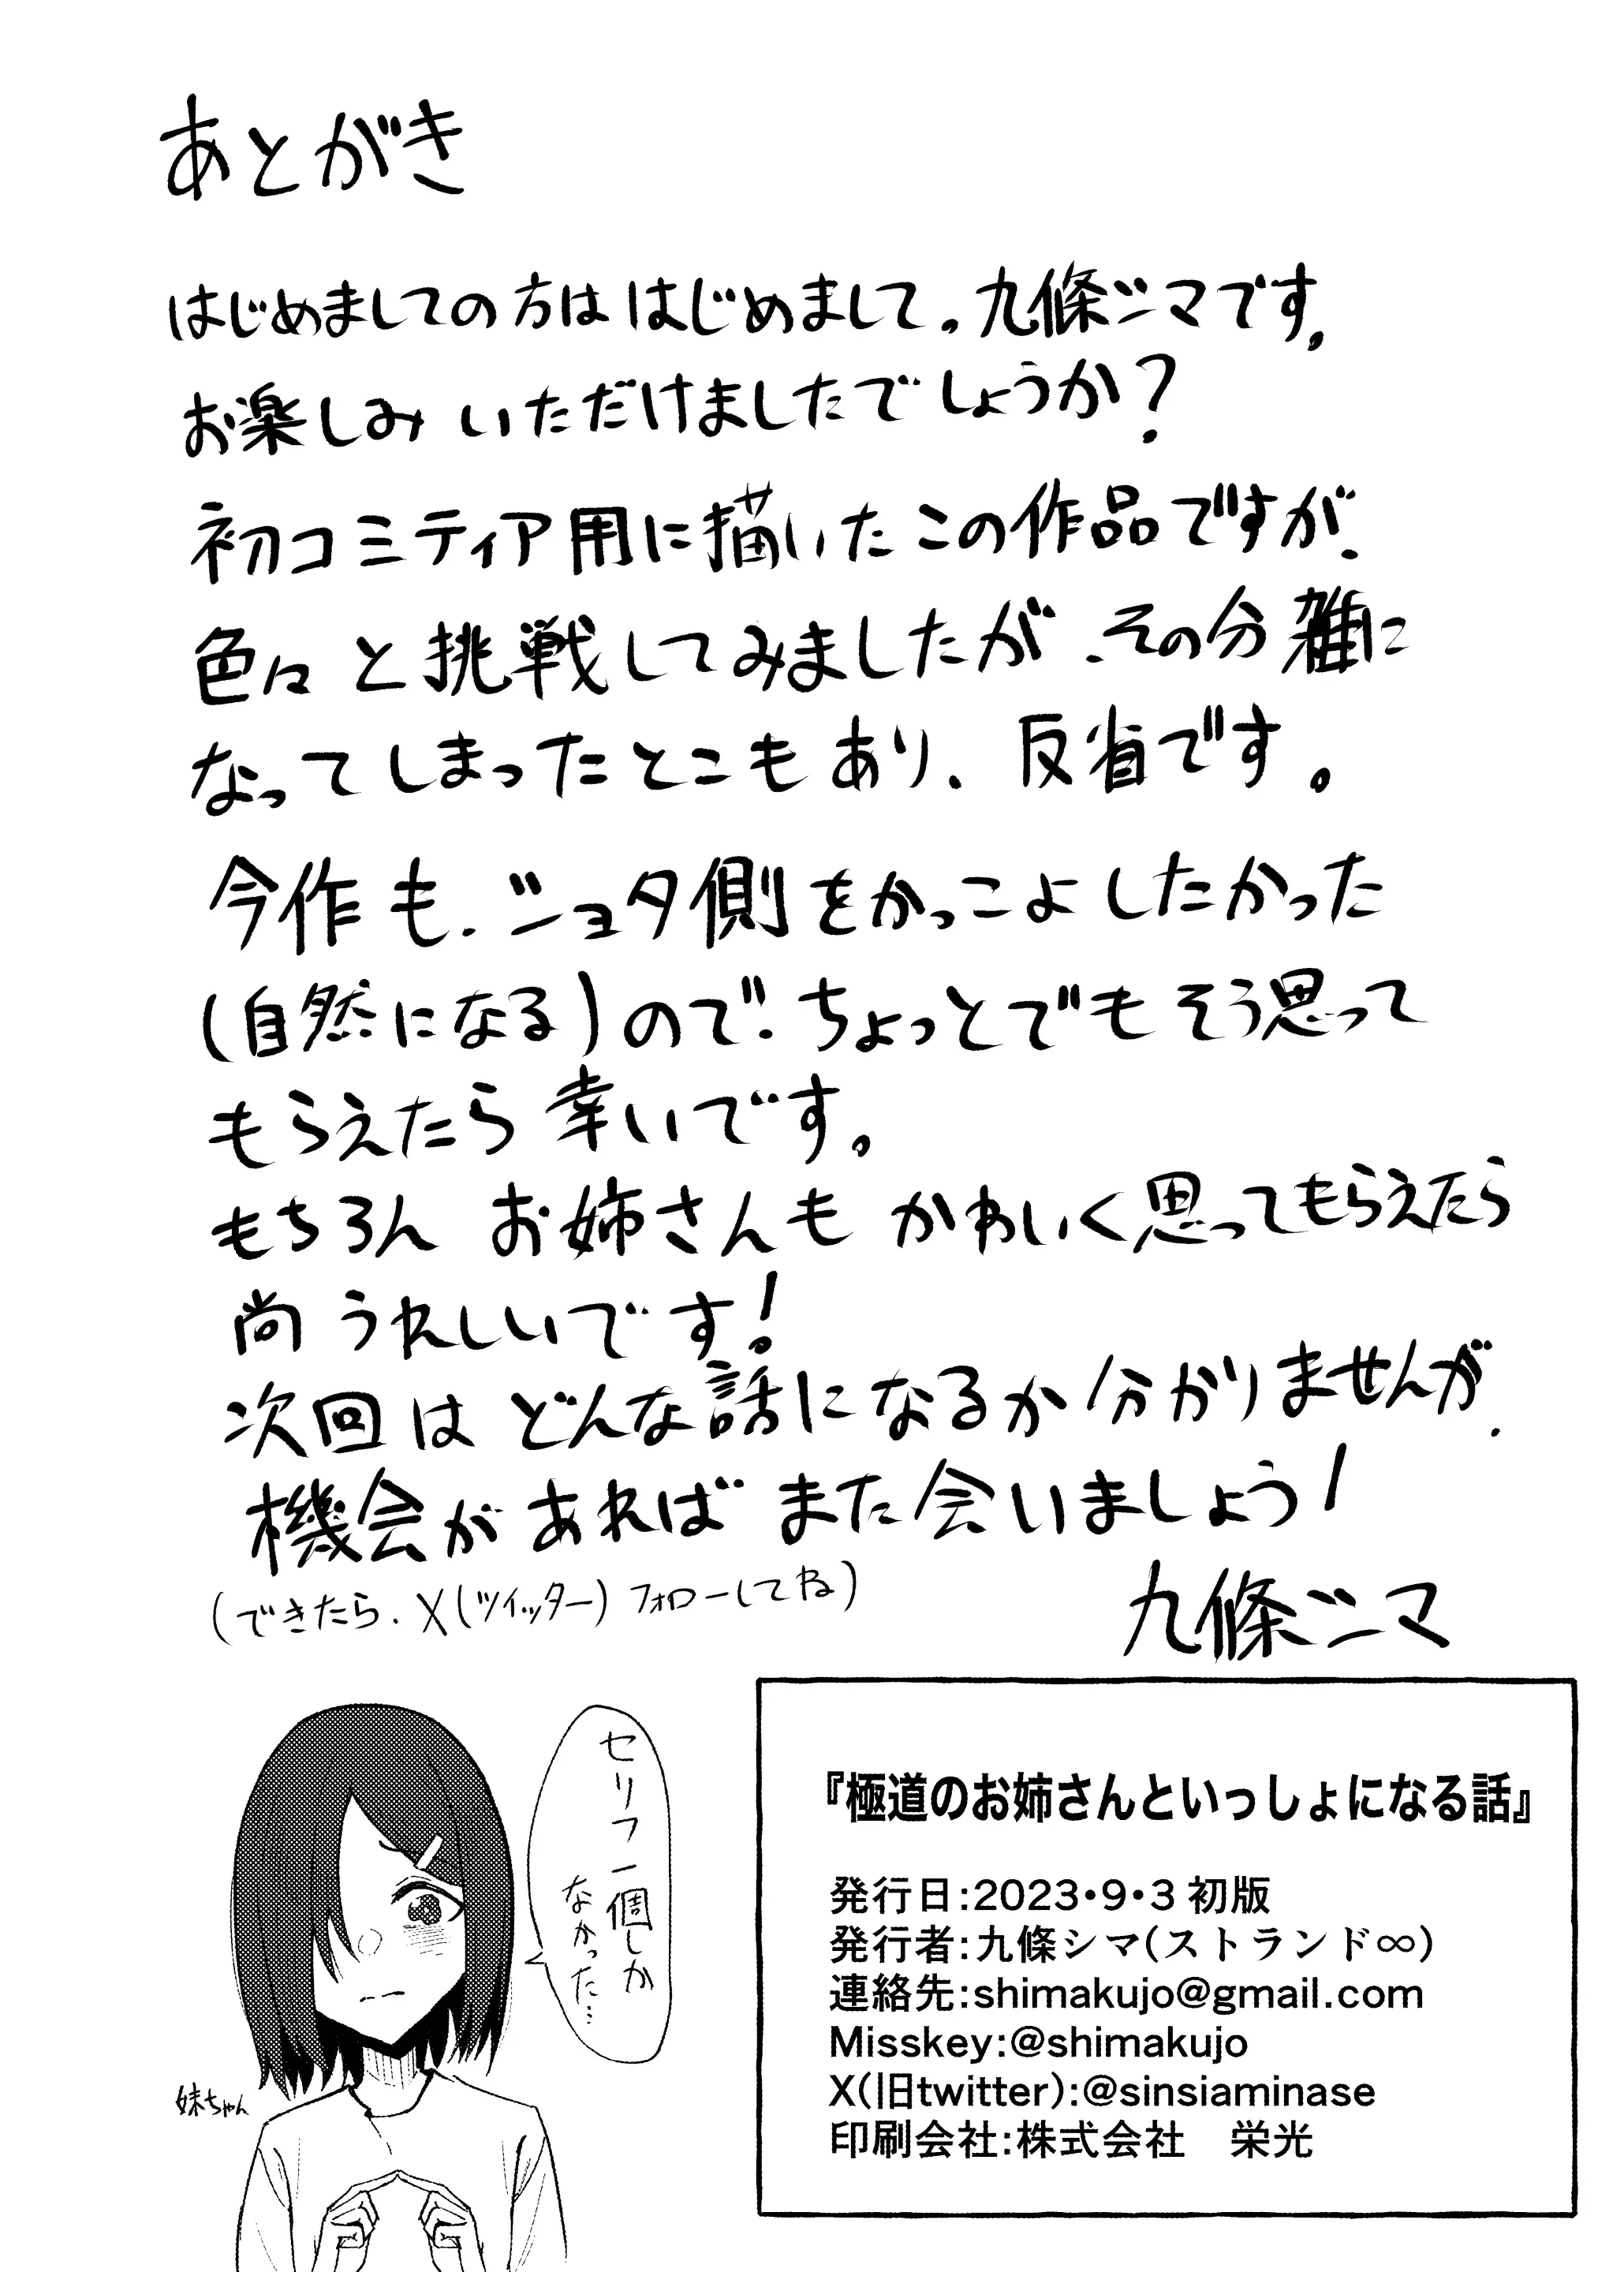 あとがき
はじめましての方は はじめまして。九條シマです。
お楽しみ いただけましたでしょうか?
初コミティア用に描いた この作品ですが、
色々と挑戦してみましたが、その分 雑に
なってしまったとこもあり、反省です。
今作も、ショタ側をかっこよしたかった
(自然になる)ので、ちょっとでも そう思って
もらえたら 幸いです。
もちろん お姉さんも かわいく思ってもらえたら
尚 うれしいです!
次回は どんな話になるか 分かりませんが、
機会があれば また会いましょう!
(できたら、X(ツイッター)フォローしてね)
九條シマ
セリフ一個しか
なかった…
妹ちゃん
『極道のお姉さんといっしょになる話』
発行日:2023・9・3 初版
発行者:九條シマ(ストランド∞)
連絡先:shimakujo@gmail.com
Misskey:@shimakujo
X(旧twitter):@sinsiaminase
印刷会社:株式会社　栄光